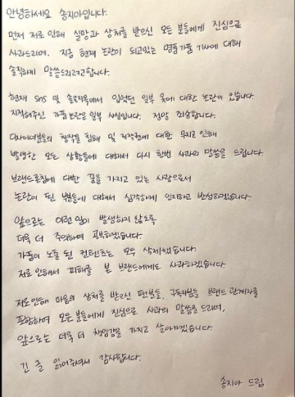 안녕하세요 송지아입니다.
먼저 저로 인해 실망과 상처를 받으신 모든 분들에게 진심으로
사과드리며, 지금 현재 논란이 되고있는 명품가품 기사에 대해
솔직하게 말씀드리려고합니다.
현재 SNS 및 솔로지옥에서 입었던 일부 옷에 대한 논란이 있습니다
지적해주신 가품논란은 일부 사실입니다. 정말 죄송합니다.
디자이너분들의 창작물 침해 및 저작권에 대한 무지로 인해
발생한 모든 상황들에 대해서 다시 한번 사과의 말씀을 드립니다.
브랜드론칭에 대한 꿈을 가지고 있는 사람으로서
논란이 된 부분들에 대해서 심각하게 인지하고 반성하겠습니다.
앞으로는 이런일이 발생하지 않도록
더욱 더 주의하며 공부하겠습니다.
가품이 노출 된 컨텐츠는 모두 삭제했습니다.
저로 인해서 피해를 본 브랜드에게도 사과하겠습니다.
저로인해 마음의 상처를 받으신 팬분들, 구독자분들 브랜드 관계자를
포함하여 모든 분들에게 진심으로 사과의 말씀을 드리며,
앞으로는 더욱 더 책임감을 가지고 살아가겠습니다.
긴 글 읽어주셔서 감사합니다.
송지아 드림